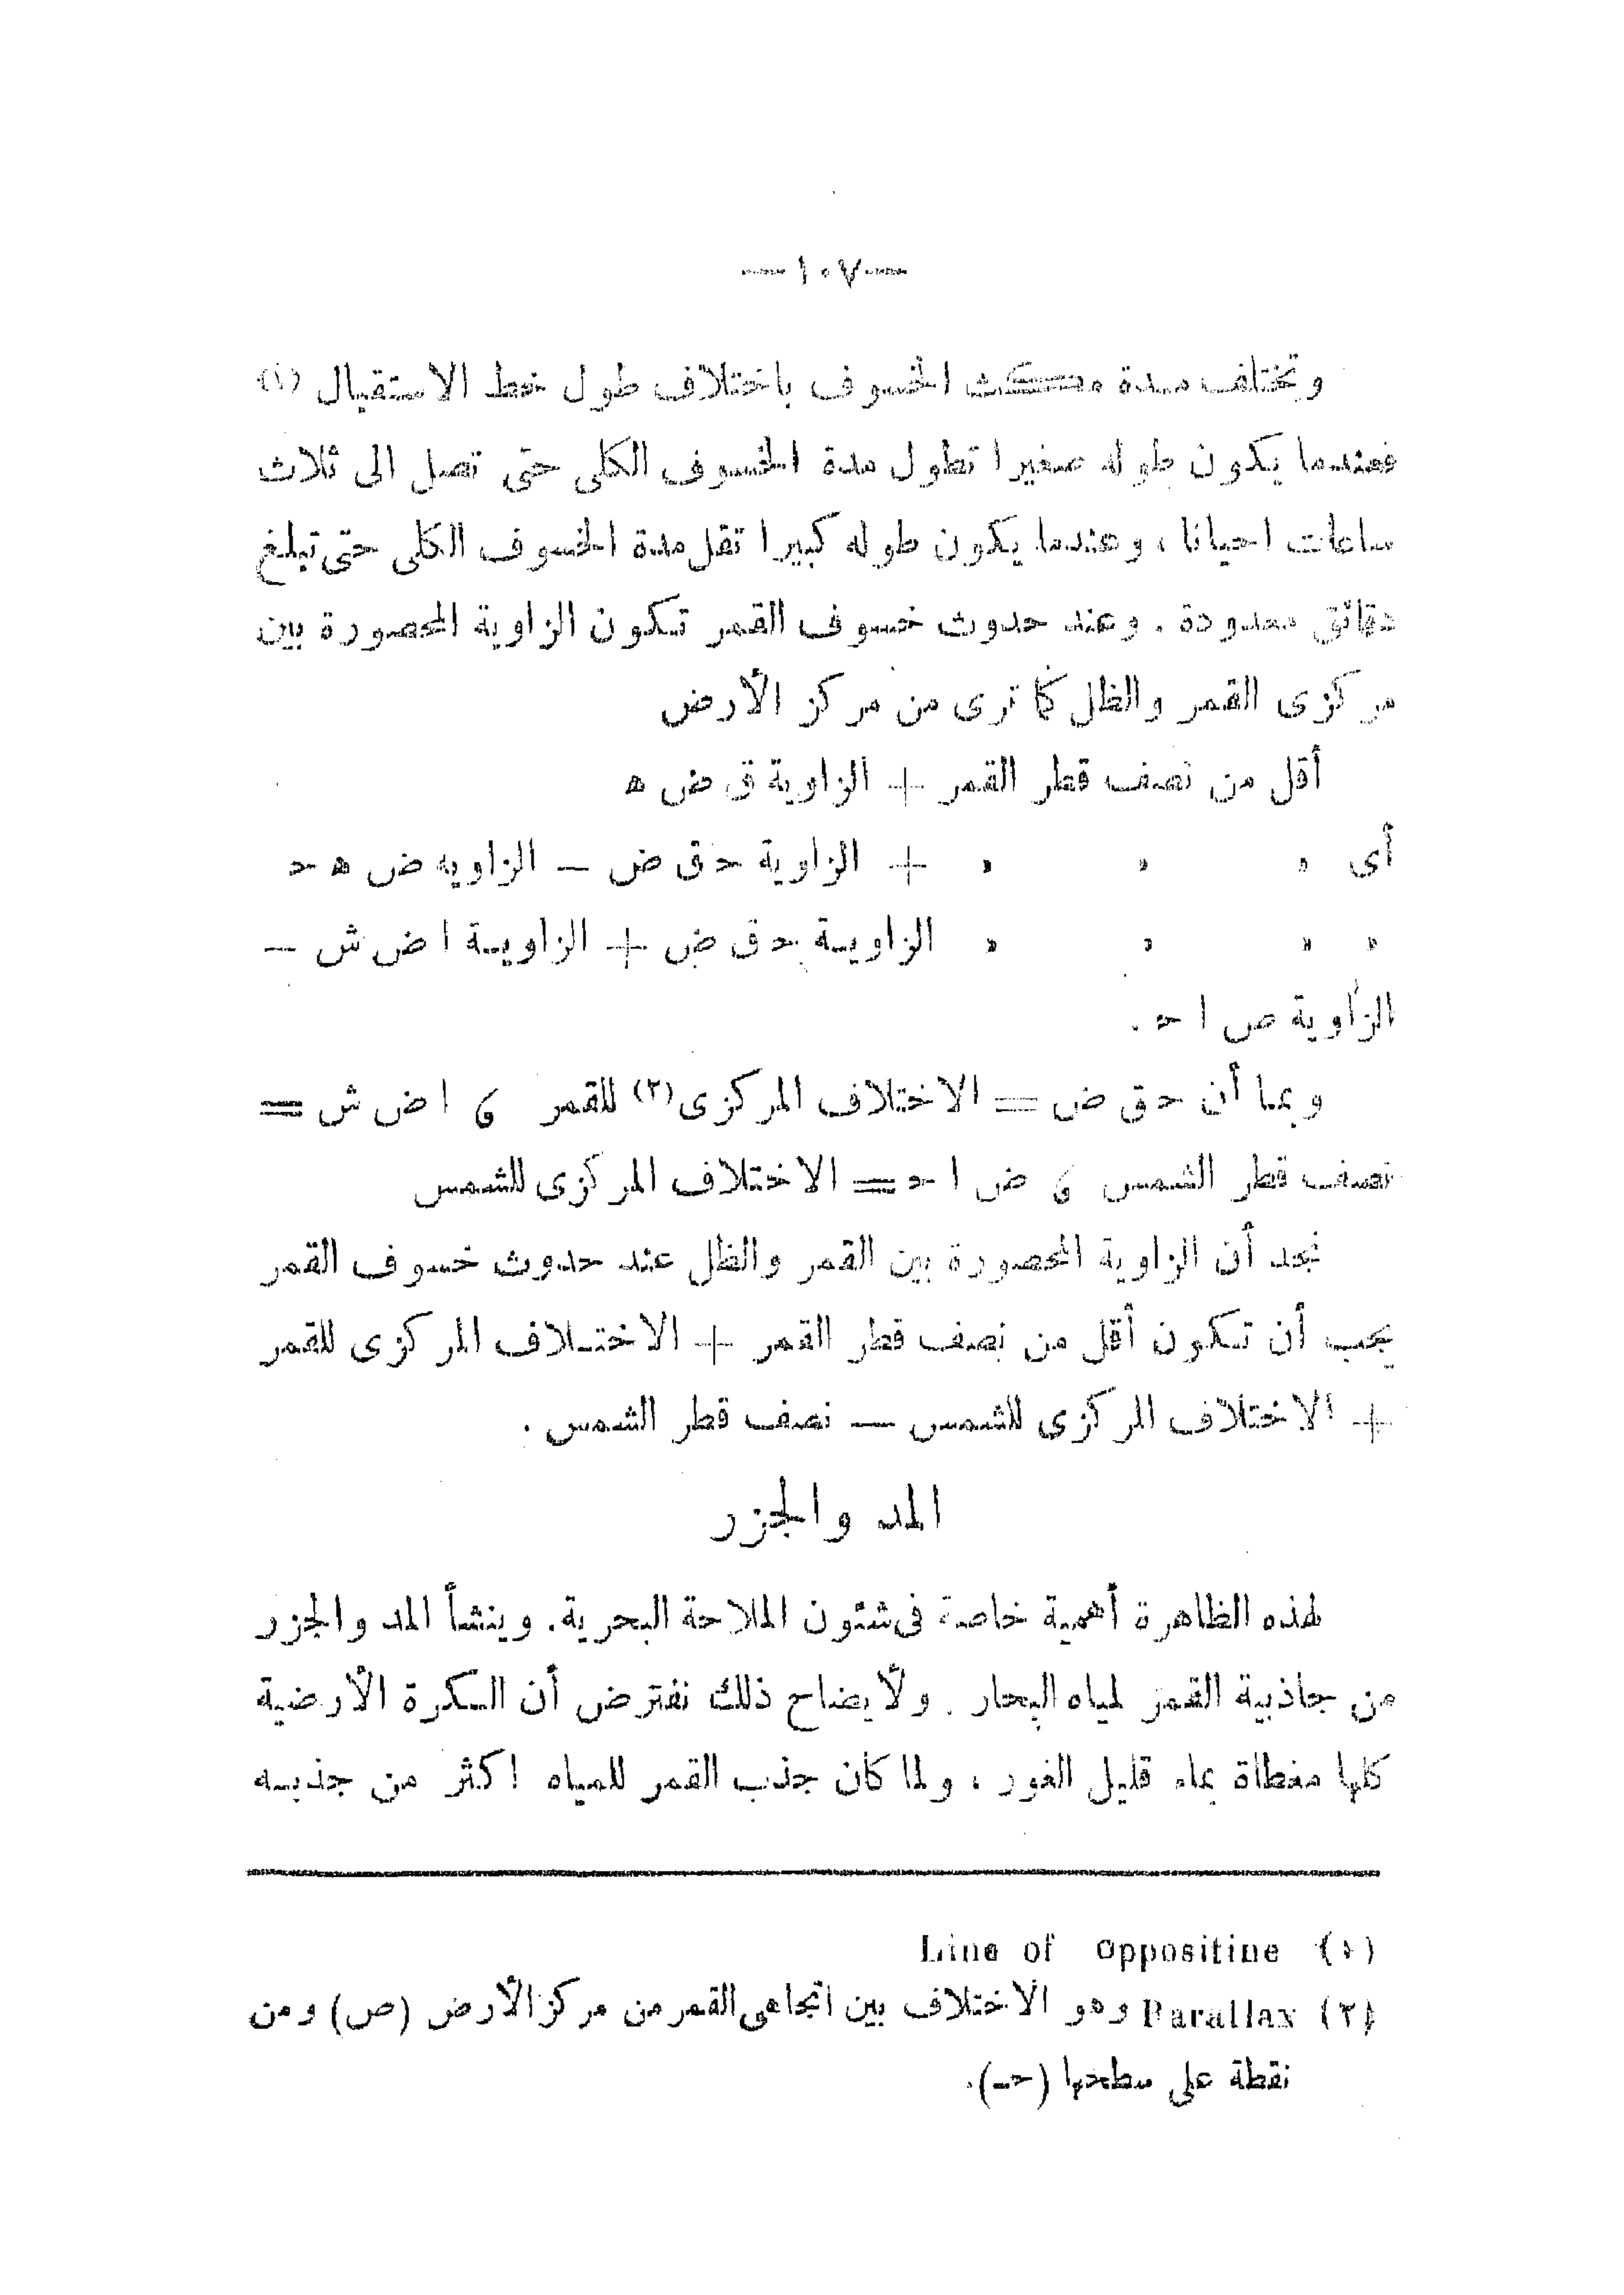 —١٠٧—
وتختلف مدة مكث الخسوف باختلاف طول خط الاستقبال (١)
فعندما يكون طوله صغيرا تطول مدة الخسوف الكلى حتى تصل الى ثلاث
ساعات احيانا ، وعندما يكون طوله كبيرا تقل مدة الخسوف الكلى حتى تبلغ
دقائق معدودة . وعند حدوث خسوف القمر تكون الزاوية المحصورة بين
مركزى القمر والظل كما ترى من مركز الأرض
أقل من نصف قطر القمر + الزاوية ق ض ه
أى » » » + الزاوية حـ ق ض — الزاويه ض ه حـ
» » » » الزاوية حـ ق ض + الزاوية ا ض ش —
الزاوية ص ا حـ .
وبما أن حـ ق ض = الاختلاف المركزى (٢) للقمر ، ا ض ش =
نصف قطر الشمس ، ض ا حـ = الاختلاف المركزى للشمس
نجد أن الزاوية المحصورة بين القمر والظل عند حدوث خسوف القمر
يجب أن تكون أقل من نصف قطر القمر + الاختلاف المركزى للقمر
+ الاختلاف المركزى للشمس — نصف قطر الشمس .
المد والجزر
لهذه الظاهرة أهمية خاصة فى شئون الملاحة البحرية. وينشأ المد والجزر
من جاذبية القمر لمياه البحار . ولأيضاح ذلك نفترض أن الكرة الأرضية
كلها مغطاة بماء قليل الغور ، ولما كان جذب القمر للمياه اكثر من جذبه
(١) Line of Oppositine
(٢) Parallax وهو الاختلاف بين اتجاهى القمر من مركز الأرض (ص) ومن
نقطة على سطحها (حـ).